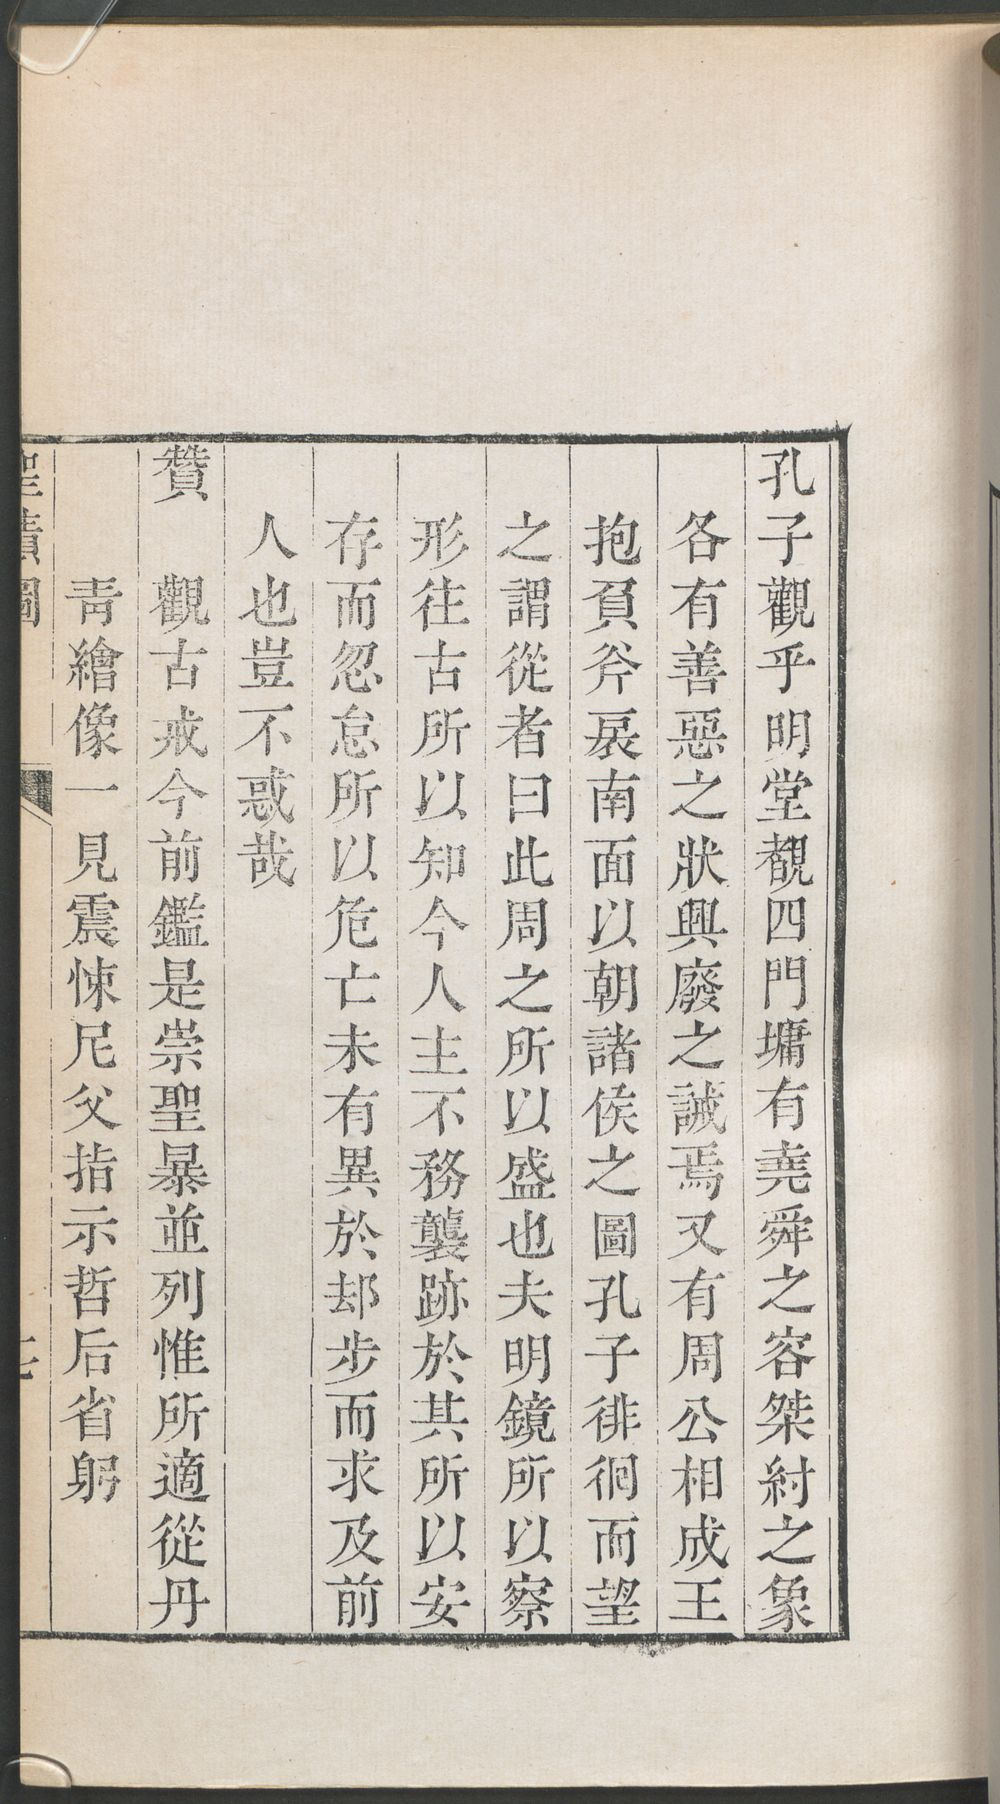 孔子觀乎明堂覩四門墉有堯舜之容桀紂之象
各有善惡之狀興廢之誡焉又有周公相成王
抱負斧扆南面以朝諸侯之圖孔子徘徊而望
之謂從者曰此周之所以盛也夫明鏡所以察
形往古所以知今人主不務襲跡於其所以安
存而忽怠所以危亡未有異於却步而求及前
人也豈不惑哉
贊
觀古戒今前鑑是崇聖暴並列惟所適從丹
青繪像一見震悚尼父指示哲后省躬
聖蹟圖